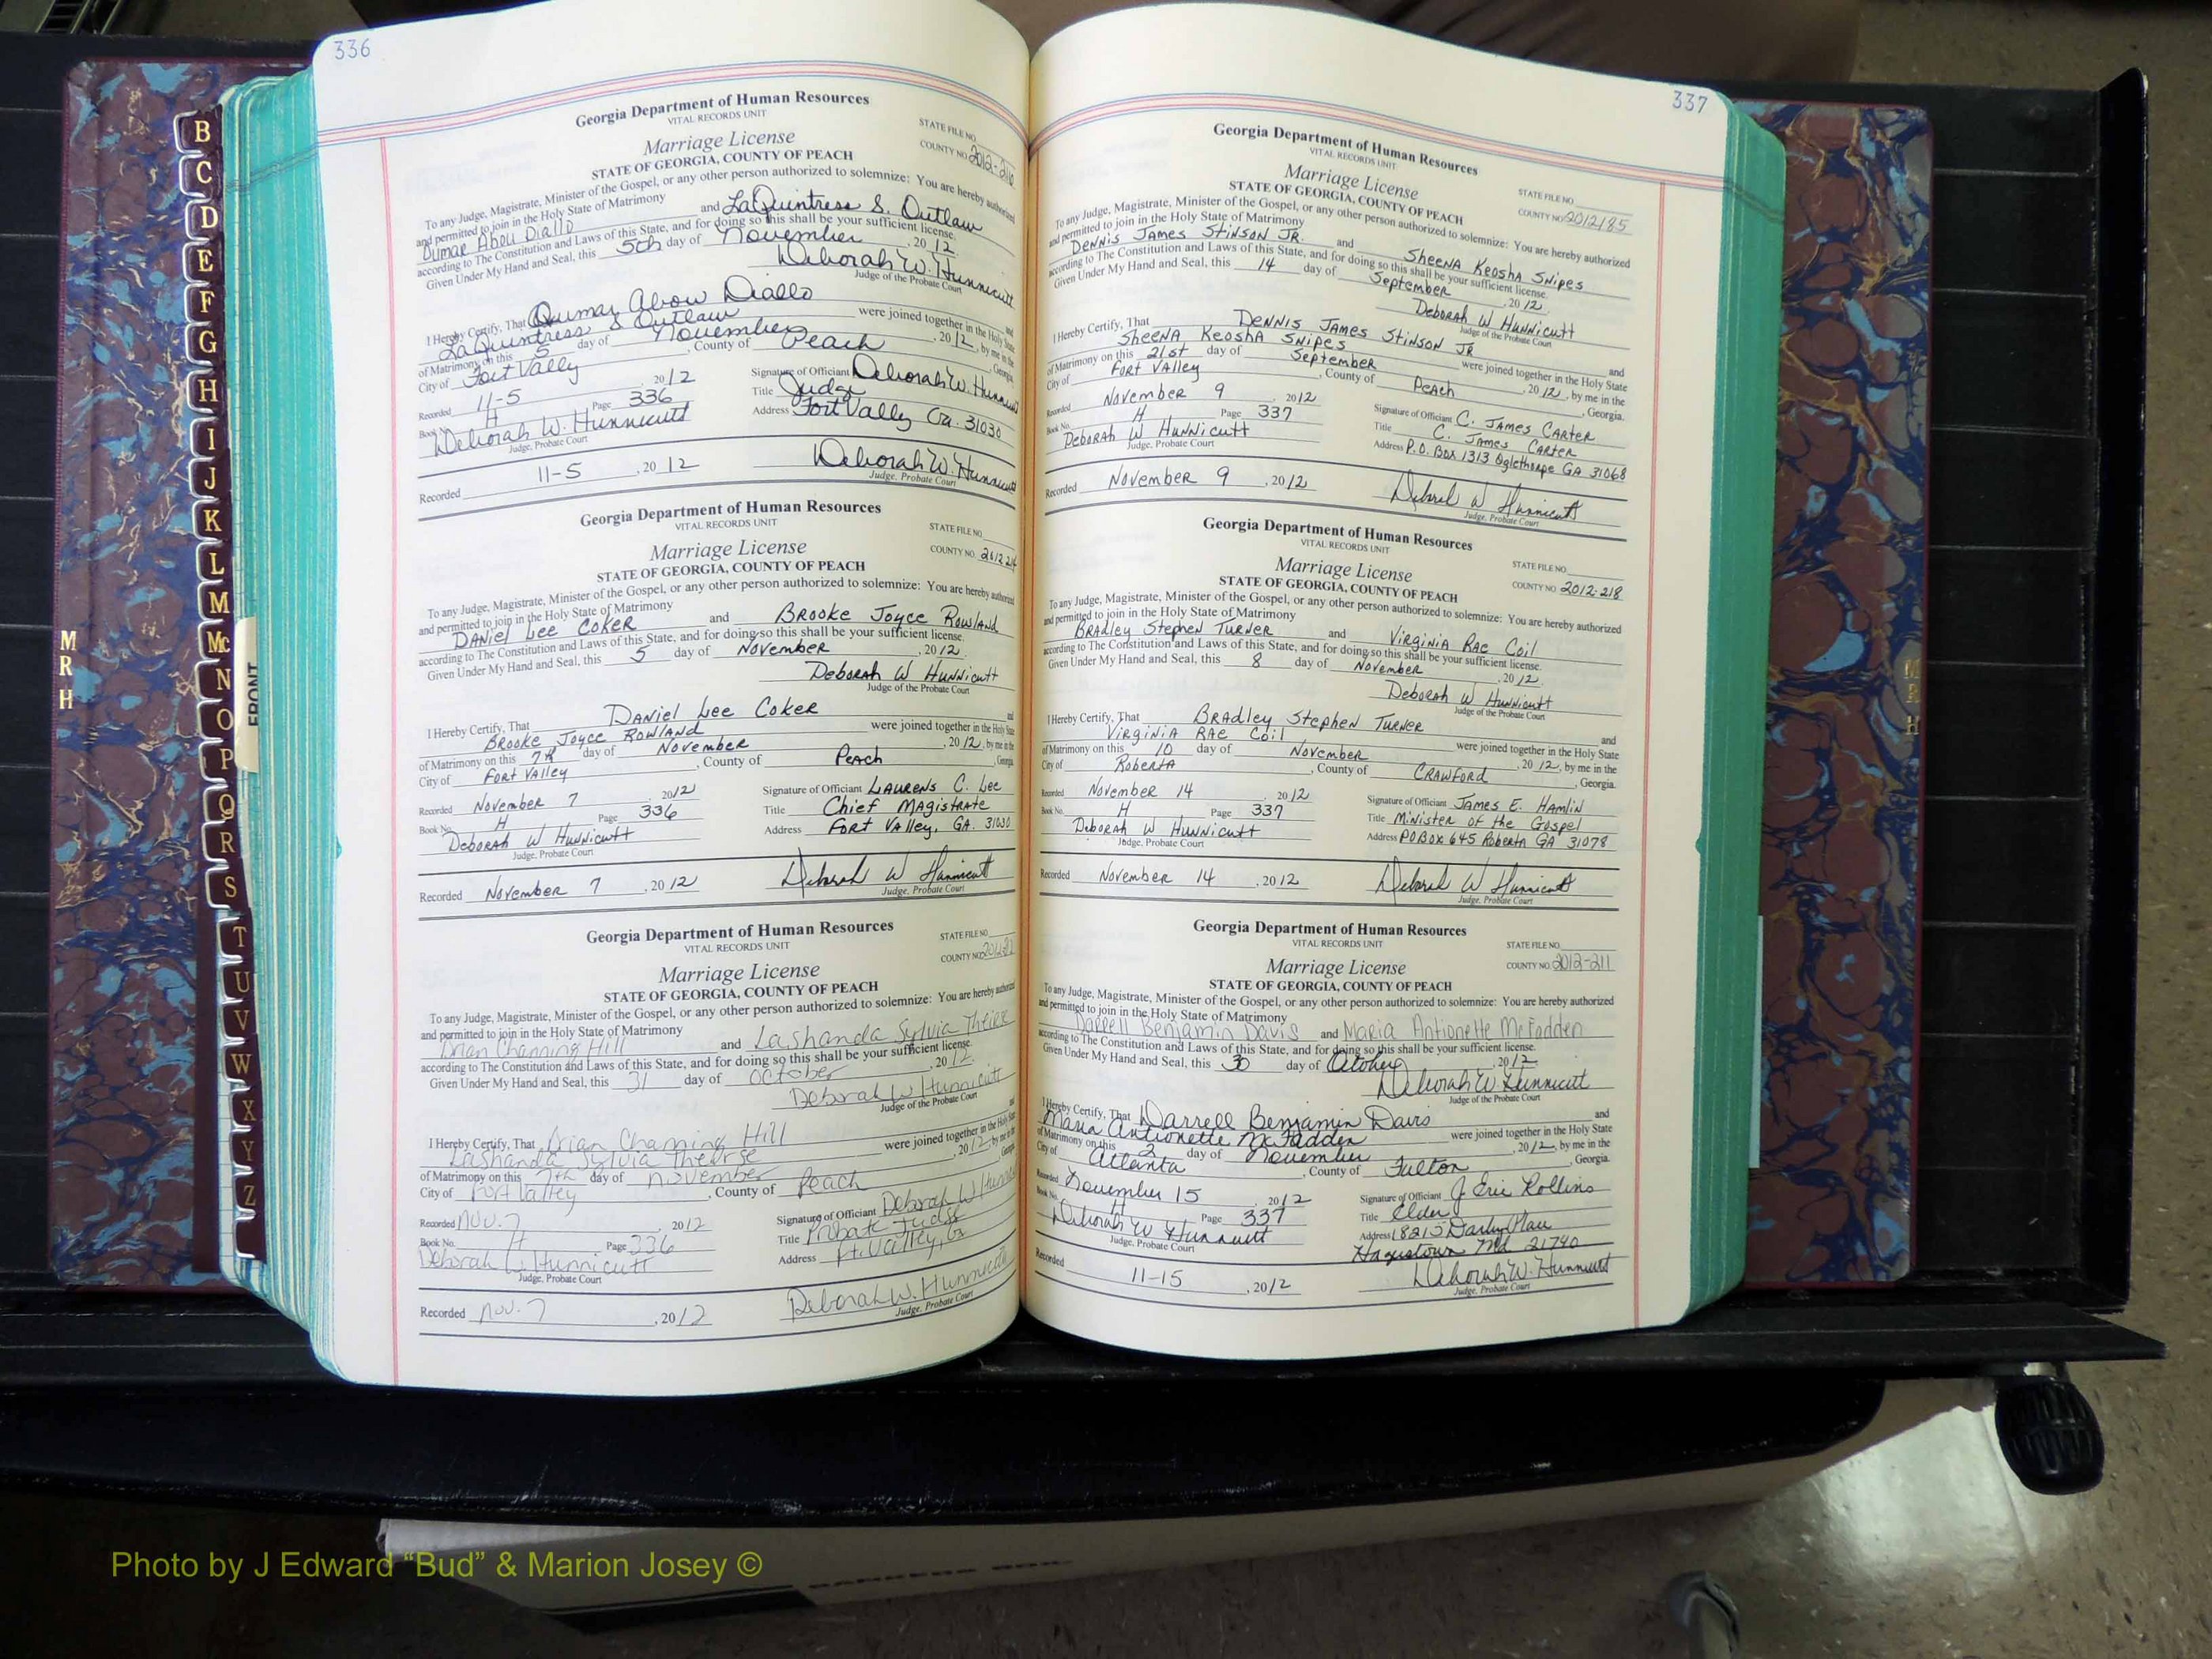 336
Georgia Department of Human Resources
VITAL RECORDS UNIT
Marriage License
STATE FILE NO.
COUNTY NO. 2012-216
STATE OF GEORGIA, COUNTY OF PEACH
To any Judge, Magistrate, Minister of the Gospel, or any other person authorized to solemnize: You are hereby authorized
and permitted to join in the Holy State of Matrimony
Oumar Abou Diallo and LaQuintress S. Outlaw
according to The Constitution and Laws of this State, and for doing so this shall be your sufficient license.
Given Under My Hand and Seal, this 5th day of November, 2012
Deborah W. Hunnicutt
Judge of the Probate Court
I Hereby Certify, That Oumar Abou Diallo and
LaQuintress S Outlaw were joined together in the Holy State
of Matrimony on this 5 day of November, 2012, by me in the
City of Fort Valley, County of Peach, Georgia.
Recorded 11-5, 2012 Signature of Officiant Deborah W. Hunnicutt
Book No. H Page 336 Title Judge
Deborah W. Hunnicutt Address Fort Valley Ga. 31030
Judge, Probate Court
Recorded 11-5, 2012 Deborah W. Hunnicutt
Judge, Probate Court
Georgia Department of Human Resources
VITAL RECORDS UNIT
Marriage License
STATE FILE NO.
COUNTY NO.
STATE OF GEORGIA, COUNTY OF PEACH
To any Judge, Magistrate, Minister of the Gospel, or any other person authorized to solemnize: You are hereby authorized
and permitted to join in the Holy State of Matrimony
Daniel Lee Coker and Brooke Joyce Rowland
according to The Constitution and Laws of this State, and for doing so this shall be your sufficient license.
Given Under My Hand and Seal, this 5 day of November, 2012.
Deborah W Hunnicutt
Judge of the Probate Court
I Hereby Certify, That Daniel Lee Coker and
Brooke Joyce Rowland were joined together in the Holy State
of Matrimony on this 7th day of November, 2012, by me in the
City of Fort Valley, County of Peach, Georgia.
Recorded November 7, 2012 Signature of Officiant Laurens C. Lee
Book No. H Page 336 Title Chief Magistrate
Deborah W Hunnicutt Address Fort Valley, GA. 31030
Judge, Probate Court
Recorded November 7, 2012 Deborah W Hunnicutt
Judge, Probate Court
Georgia Department of Human Resources
VITAL RECORDS UNIT
Marriage License
STATE FILE NO.
COUNTY NO.
STATE OF GEORGIA, COUNTY OF PEACH
To any Judge, Magistrate, Minister of the Gospel, or any other person authorized to solemnize: You are hereby authorized
and permitted to join in the Holy State of Matrimony
Brian Channing Hill and Lashanda Sylvia
according to The Constitution and Laws of this State, and for doing so this shall be your sufficient license.
Given Under My Hand and Seal, this 31 day of October, 2012.
Deborah W Hunnicutt
Judge of the Probate Court
I Hereby Certify, That Brian Channing Hill and
Lashanda Sylvia were joined together in the Holy State
of Matrimony on this 7th day of November, 2012, by me in the
City of Fort Valley, County of Peach, Georgia.
Recorded Nov. 7, 2012 Signature of Officiant Deborah W Hunnicutt
Book No. H Page 336 Title Probate Judge
Deborah W Hunnicutt Address Ft. Valley, Ga
Judge, Probate Court
Recorded Nov. 7, 2012 Deborah W. Hunnicutt
Judge, Probate Court
337
Georgia Department of Human Resources
VITAL RECORDS UNIT
Marriage License
STATE FILE NO.
COUNTY NO. 2012185
STATE OF GEORGIA, COUNTY OF PEACH
To any Judge, Magistrate, Minister of the Gospel, or any other person authorized to solemnize: You are hereby authorized
and permitted to join in the Holy State of Matrimony
Dennis James Stinson JR. and Sheena Keosha Snipes
according to The Constitution and Laws of this State, and for doing so this shall be your sufficient license.
Given Under My Hand and Seal, this 14 day of September, 2012.
Deborah W Hunnicutt
Judge of the Probate Court
I Hereby Certify, That Dennis James Stinson JR and
Sheena Keosha Snipes were joined together in the Holy State
of Matrimony on this 21st day of September, 2012, by me in the
City of Fort Valley, County of Peach, Georgia.
Recorded November 9, 2012 Signature of Officiant C. James Carter
Book No. H Page 337 Title C. James Carter
Deborah W Hunnicutt Address P.O. Box 1313 Oglethorpe GA 31068
Judge, Probate Court
Recorded November 9, 2012 Deborah W Hunnicutt
Judge, Probate Court
Georgia Department of Human Resources
VITAL RECORDS UNIT
Marriage License
STATE FILE NO.
COUNTY NO. 2012-218
STATE OF GEORGIA, COUNTY OF PEACH
To any Judge, Magistrate, Minister of the Gospel, or any other person authorized to solemnize: You are hereby authorized
and permitted to join in the Holy State of Matrimony
Bradley Stephen Turner and Virginia Rae Coil
according to The Constitution and Laws of this State, and for doing so this shall be your sufficient license.
Given Under My Hand and Seal, this 8 day of November, 2012.
Deborah W Hunnicutt
Judge of the Probate Court
I Hereby Certify, That Bradley Stephen Turner and
Virginia Rae Coil were joined together in the Holy State
of Matrimony on this 10 day of November, 2012, by me in the
City of Roberta, County of Crawford, Georgia.
Recorded November 14, 2012 Signature of Officiant James E. Hamlin
Book No. H Page 337 Title Minister of the Gospel
Deborah W Hunnicutt Address PO Box 645 Roberta GA 31078
Judge, Probate Court
Recorded November 14, 2012 Deborah W Hunnicutt
Judge, Probate Court
Georgia Department of Human Resources
VITAL RECORDS UNIT
Marriage License
STATE FILE NO.
COUNTY NO. 2012-211
STATE OF GEORGIA, COUNTY OF PEACH
To any Judge, Magistrate, Minister of the Gospel, or any other person authorized to solemnize: You are hereby authorized
and permitted to join in the Holy State of Matrimony
Darrell Benjamin Davis and Maria Antionette McFadden
according to The Constitution and Laws of this State, and for doing so this shall be your sufficient license.
Given Under My Hand and Seal, this 30 day of October, 2012
Deborah W Hunnicutt
Judge of the Probate Court
I Hereby Certify, That Darrell Benjamin Davis and
Maria Antionette McFadden were joined together in the Holy State
of Matrimony on this 2 day of November, 2012, by me in the
City of Atlanta, County of Fulton, Georgia.
Recorded November 15, 2012 Signature of Officiant J. Eric Rollins
Book No. H Page 337 Title Elder
Deborah W Hunnicutt Address 18213 Darby Place
Judge, Probate Court Hagerstown Md. 21740
Recorded 11-15, 2012 Deborah W. Hunnicutt
Judge, Probate Court
B
C
D
E
F
G
H
I
J
K
L
M
Mc
N
O
P
Q
R
S
T
U
V
W
X
Y
Z
FRONT
M
R
H
M
R
H
Photo by J Edward “Bud” & Marion Josey ©